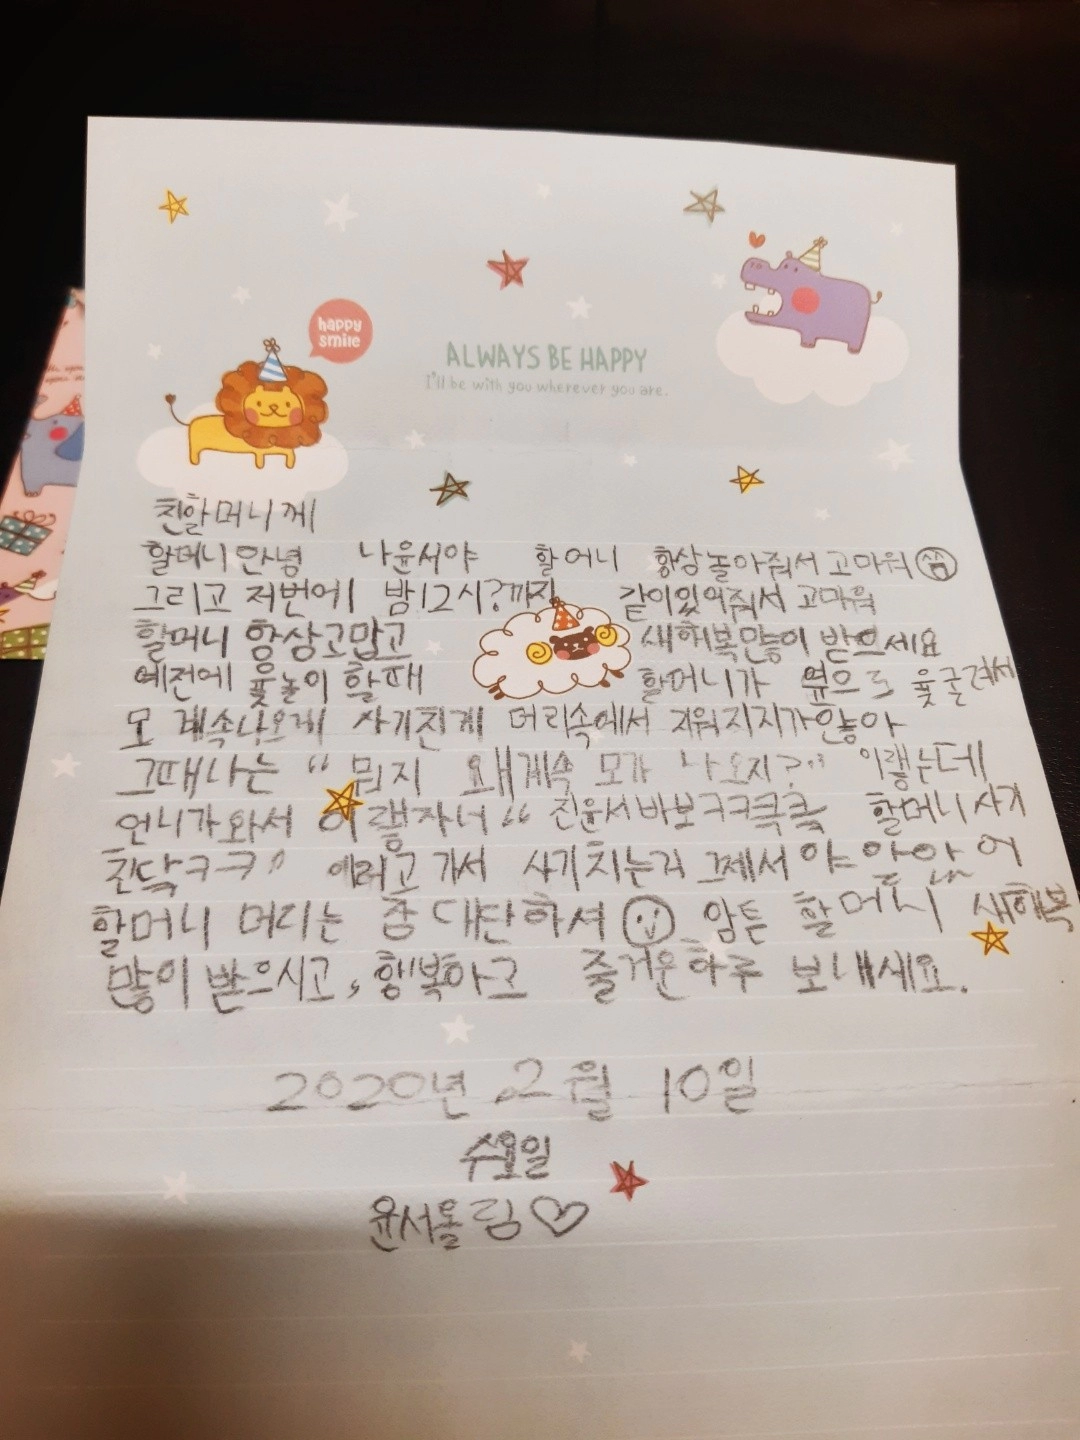 happy
smile
ALWAYS BE HAPPY
I'll be with you wherever you are.
친할머니께
할머니안녕 나윤서야 할머니 항상놀아줘서고마워
그리고 저번에 밤12시?까지 같이있어줘서 고마워
할머니 항상고맙고 새해복많이 받으세요
예전에 윷놀이 할때 할머니가 옆으로 윷굴려서
모 계속나오게 사기친게 머리속에서 지워지지가않아
그때나는 “뭐지 왜계속 모가 나오지?” 이랬는데
언니가와서 이랬자너“ 진윤서바보ㅋㅋㅋㅋ 할머니사기
친닥ㅋㅋ” 에러고 가서 사기치는거 그제서야 알았어
할머니 머리는 좀 대단하셔 암튼 할머니 새해복
많이 받으시고, 행복하고 즐거운하루 보내세요.
2020년 2월 10일
수요일
윤서올림♡